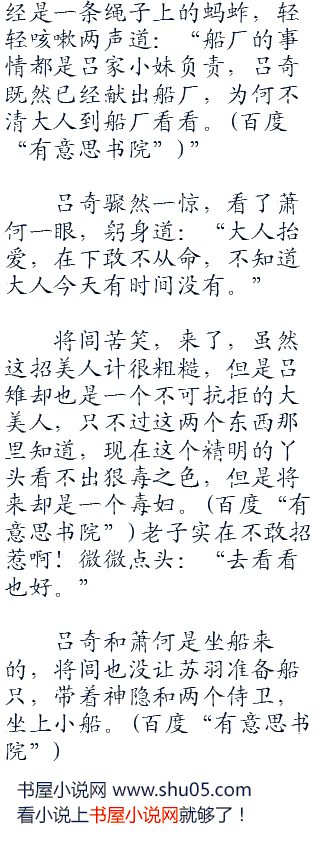 经是一条绳子上的蚂蚱，轻
轻咳嗽两声道：“船厂的事
情都是吕家小妹负责，吕奇
既然已经献出船厂，为何不
清大人到船厂看看。(百度
“有意思书院”)”
吕奇骤然一惊，看了萧
何一眼，躬身道：“大人抬
爱，在下敢不从命，不知道
大人今天有时间没有。”
将闾苦笑，来了，虽然
这招美人计很粗糙，但是吕
雉却也是一个不可抗拒的大
美人，只不过这两个东西那
里知道，现在这个精明的丫
头看不出狠毒之色，但是将
来却是一个毒妇。(百度“有
意思书院”)老子实在不敢招
惹啊！微微点头：“去看看
也好。”
吕奇和萧何是坐船来
的，将闾也没让苏羽准备船
只，带着神隐和两个侍卫，
坐上小船。(百度“有意思书
院”)
书屋小说网 www.shu05.com
看小说上书屋小说网就够了！